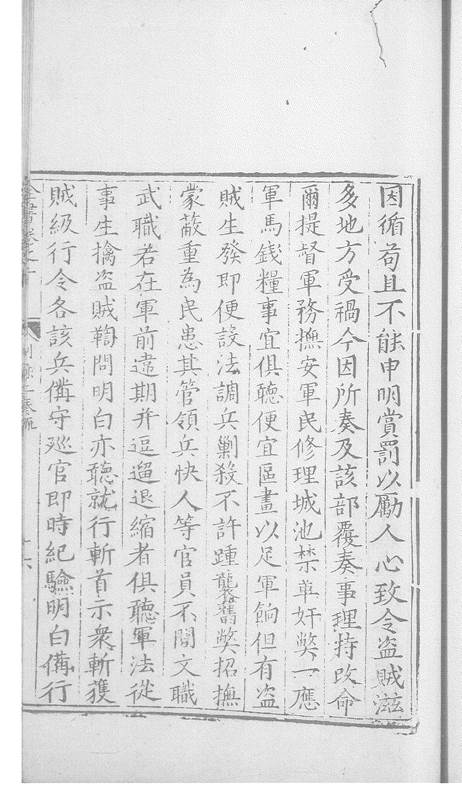 因循苟且不能申明賞罰以勵人心致令盜賊滋
多地方受禍今因所奏及該部覆奏事理特改命
爾提督軍務撫安軍民修理城池禁革奸獘一應
軍馬錢糧事宜俱聽便宜區畫以足軍餉但有盜
賊生發即便設法調兵勦殺不許踵襲舊獘招撫
蒙蔽重為民患其管領兵快人等官員不問文職
武職若在軍前違期并逗遛退縮者俱聽軍法從
事生擒盜賊鞫問明白亦聽就行斬首示衆斬獲
賊級行令各該兵備守廵官即時紀驗明白備行
全書卷之十